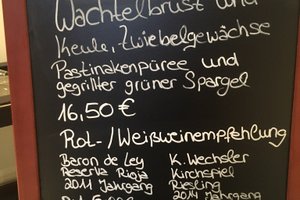 Wachtelbrust und
Keule, Zwiebelgewächse
Pastinakenpüree und
gegrillter grüner Spargel
16,50 €
Rot-/Weißweinempfehlung
Baron de Ley K. Wechsler
Reserva Rioja Kirchspiel
2011 Jahrgang Riesling
2014 Jahrgang